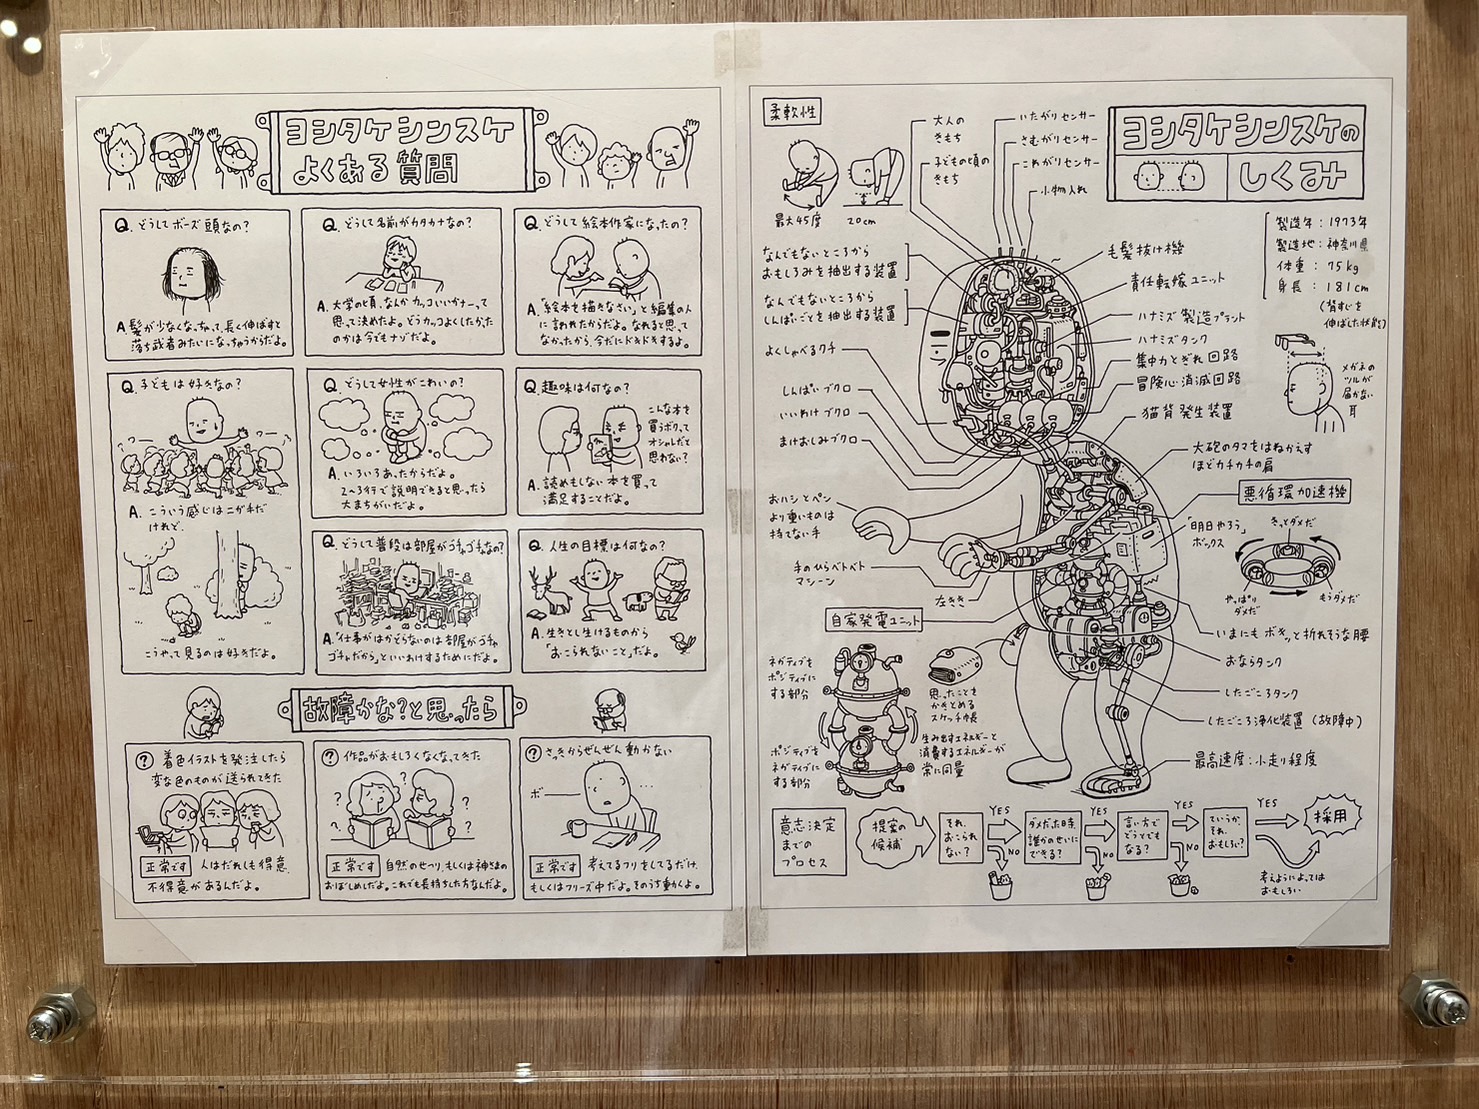 ヨシタケシンスケ
よくある質問
Q. どうしてボーズ頭なの?
A. 髪が少なくなっちゃって、長く伸ばすと
落ち武者みたいになっちゃうからだよ。
Q. どうして名前がカタカナなの?
A. 大学の頃、なんかカッコいいかナーって
思って決めたよ。どうカッコよくしたかった
のかは今でもナゾだよ。
Q. どうして絵本作家になったの?
A. 「絵本を描きなさい」と編集の人
に言われたからだよ。なれると思って
なかったから、今だにドキドキするよ。
Q. 子どもは好きなの?
ワー
ワー
A. こういう感じはニガ手だ
けれど、
こうやって見るのは好きだよ。
Q. どうして女性がこわいの?
A. いろいろあったからだよ。
2〜3行で説明できると思ったら
大まちがいだよ。
Q. 趣味は何なの?
こんな本を
買うボクって
オシャレだと
思わない?
A. 読めもしない本を買って
満足することだよ。
Q. どうして普段は部屋がゴチャゴチャなの?
A. 「仕事がはかどらないのは部屋がゴチャ
ゴチャだから」といいわけするためにだよ。
Q. 人生の目標は何なの?
A. 生きとし生けるものから
「おこられないこと」だよ。
故障かな?と思ったら
? 着色イラストを発注したら
変な色のものが送られてきた
正常です 人はだれしも得意、
不得意があるんだよ。
? 作品がおもしろくなくなってきた
? ? ? ?
正常です 自然のせつり、もしくは神さまの
おぼしめしだよ。これでも長持ちした方なんだよ。
? さっきからぜんぜん動かない
ボー
正常です 考えてるフリをしてるだけ、
もしくはフリーズ中だよ。そのうち動くよ。
ヨシタケシンスケの
しくみ
柔軟性
最大45度
20cm
大人の
きもち
子どもの頃の
きもち
いたがりセンサー
さむがりセンサー
こわがりセンサー
小物入れ
製造年:1973年
製造地:神奈川県
体重:75kg
身長:181cm
(背すじを
伸ばした状態)
なんでもないところから
おもしろみを抽出する装置
なんでもないところから
しんぱいごとを抽出する装置
よくしゃべるクチ
しんぱいブクロ
いいわけブクロ
まけおしみブクロ
おハシとペン
より重いものは
持てない手
手のひらベトベト
マシーン
左きき
毛髪抜け機
責任転嫁ユニット
ハナミズ製造プラント
ハナミズタンク
集中力とぎれ回路
冒険心消滅回路
猫背発生装置
メガネの
ツルが
届かない
耳
大砲のタマをはねかえす
ほどカチカチの肩
悪循環加速機
「明日やろう」
ボックス
きっとダメだ
やっぱり
ダメだ
もうダメだ
いまにもボキッと折れそうな腰
おならタンク
したごころタンク
したごころ浄化装置(故障中)
最高速度:小走り程度
自家発電ユニット
ネガティブを
ポジティブに
する部分
ポジティブを
ネガティブに
する部分
思ったことを
かきとめる
スケッチ帳
生み出すエネルギーと
消費するエネルギーが
常に同量
意志決定
までの
プロセス
提案の
候補
それ、
おこられ
ない?
YES
NO
ダメだった時、
誰かのせいに
できる?
YES
NO
言い方で
どうとでも
なる?
YES
NO
ていうか、
それ、
おもしろい?
YES
採用
考えようによっては
おもしろい